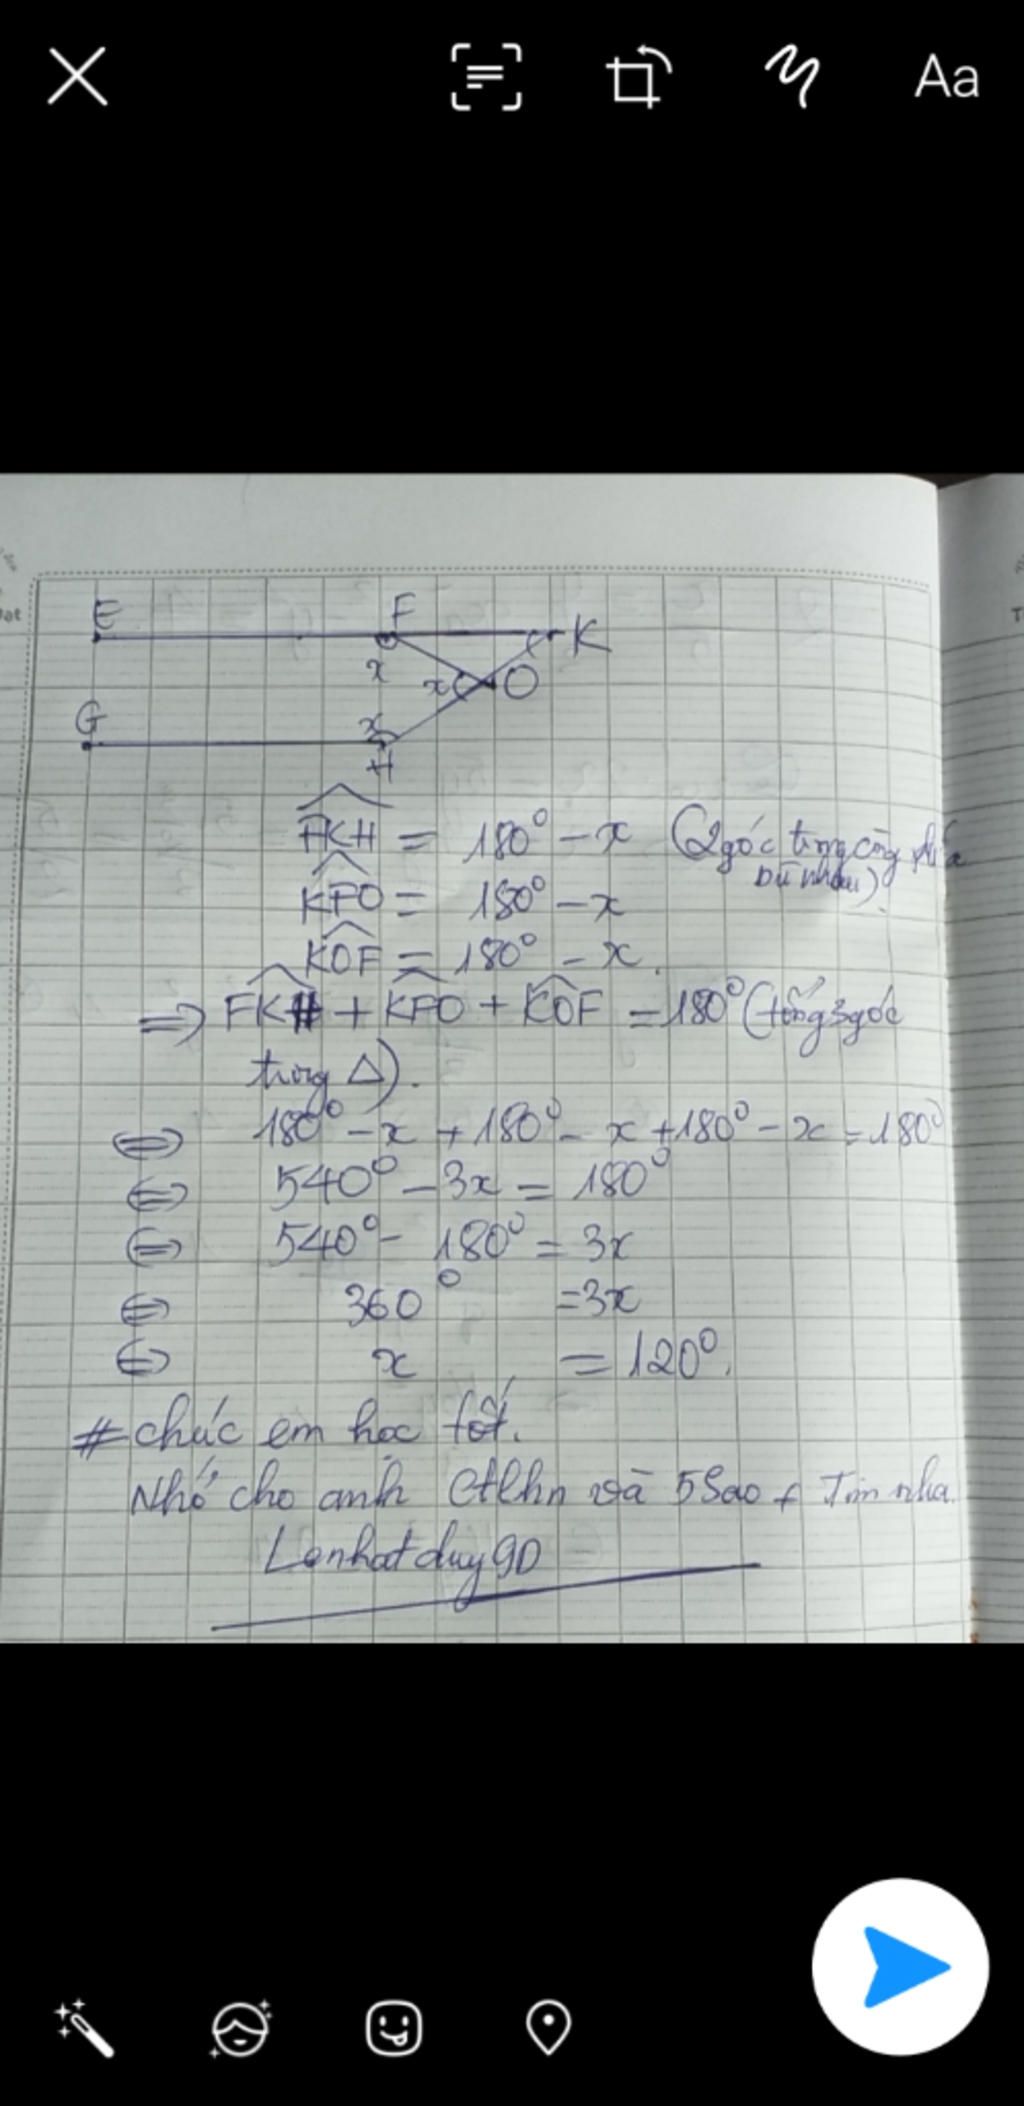 Aa
E F K
x x O
G x
H
FKH = 180° - x (2 góc trong cùng phía
bù nhau).
KFO = 180° - x
KOF = 180° - x.
=> FKH + KFO + KOF = 180° (tổng 3 góc
trong Δ).
<=> 180° - x + 180° - x + 180° - x = 180°
<=> 540° - 3x = 180°
<=> 540° - 180° = 3x
<=> 360° = 3x
<=> x = 120°.
# chúc em học tốt.
Nhớ cho anh Ctlhn và 5 Sao + Tim nha.
Lenhatduy9D